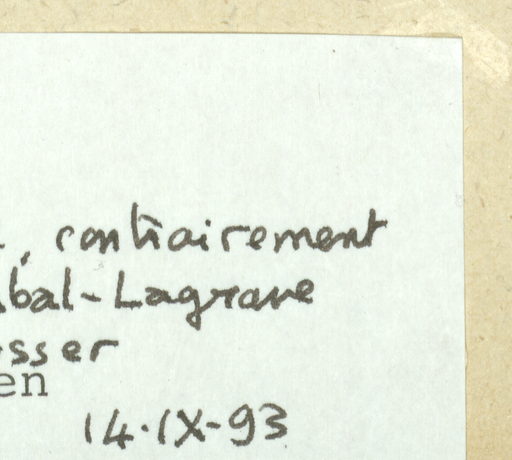 , contrairement
bal-Lagrave
sser
en
14.IX-93